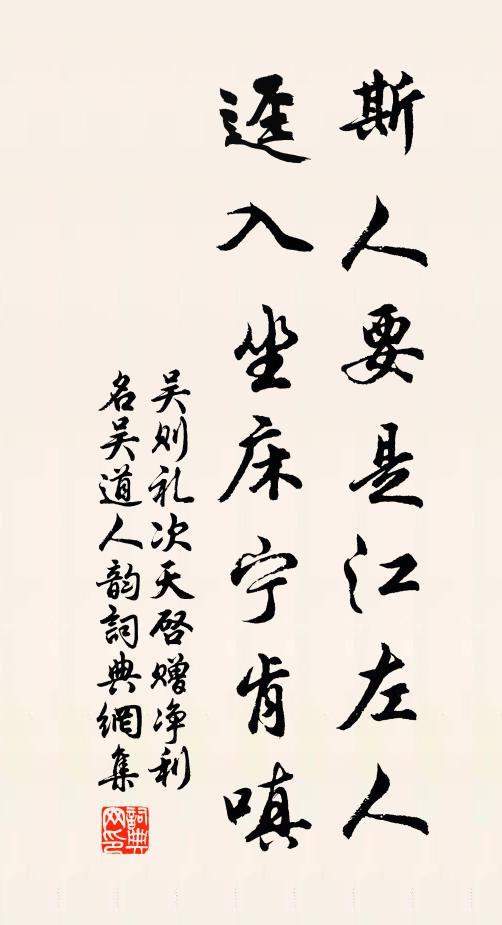 斯人要是江左人
迳入坐床宁肯嗔
吴则礼次天启赠净利
名吴道人韵詞典網集
詞典
网印